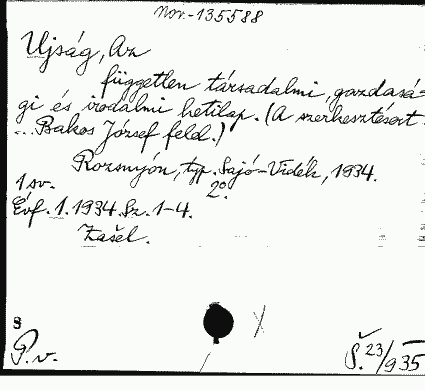 Nov.-135588
Ujság, Az
független társadalmi, gazdasá-
gi és irodalmi hetilap. (A szerkesztésért
... Bakos József felel.)
Rozsnyón, typ. Sajó-Vidék, 1934.
1 sv. 2°.
Évf. 1. 1934. Sz. 1-4.
Zašel.
8
P.v. Š. 23/935